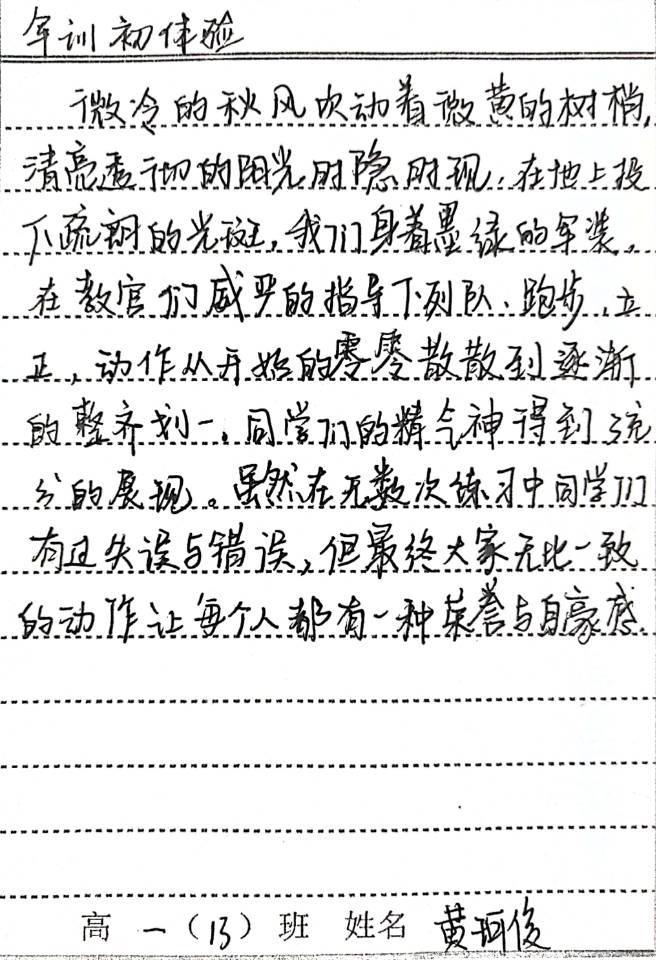 军训初体验
微冷的秋风吹动着微黄的树梢,
清亮透彻的阳光时隐时现,在地上投
下疏朗的光斑,我们身着墨绿的军装,
在教官们威严的指导下列队、跑步、立
正,动作从开始的零零散散到逐渐
的整齐划一,同学们的精气神得到充
分的展现。虽然在无数次练习中同学们
有过失误与错误,但最终大家无比一致
的动作让每个人都有一种荣誉与自豪感.
高一(13)班 姓名 黄珂俊